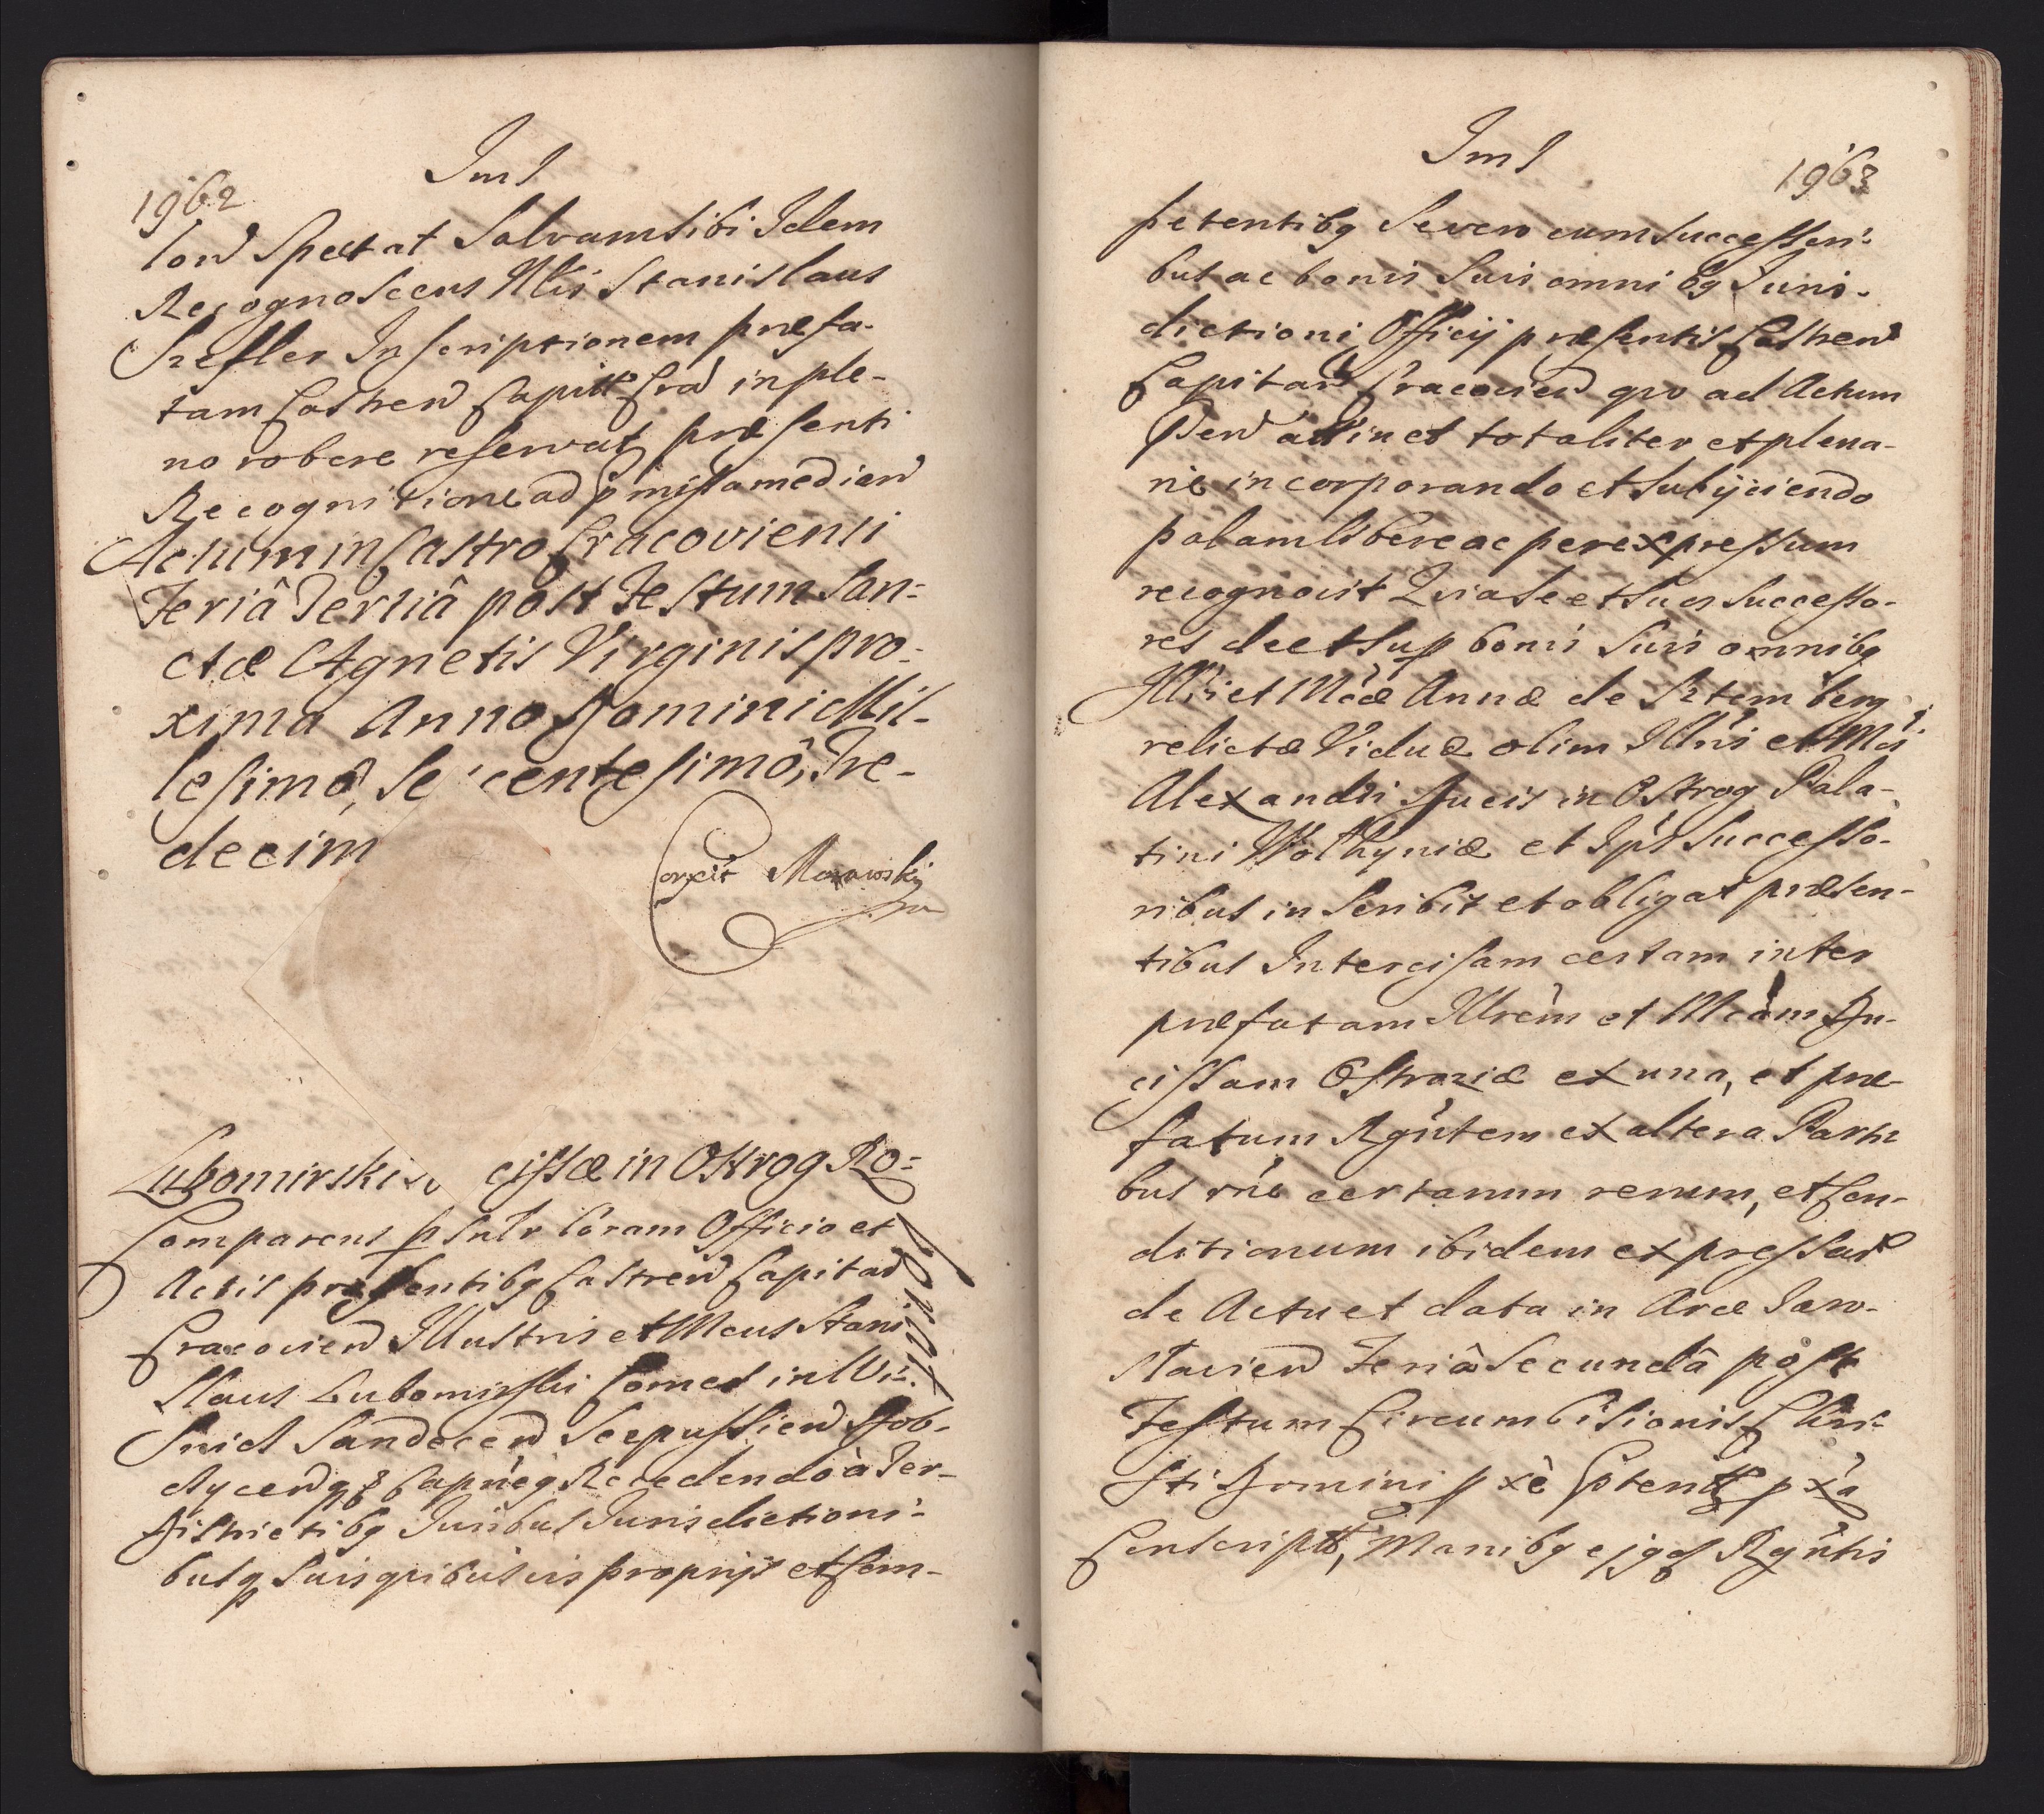 1962
Iml
lord Spectat Salvam sibi Idem
Recognoscens Mlis Stanislaus
Szefler Inscriptionem præfa-
tam Castren Capitt Cra in ple-
no robore reservat præsenti
Recognitione ad pmissa median
Actum in Castro Cracoviensi
Feriâ Tertiâ post Festum San-
ctæ Agnetis Virginis pro-
xima Anno Domini Mil-
lesimô, Se centesimô, Tre-
decim
Correxit Morawski
Lubomirski cissæ in Ostrog Ro-
borat
Comparens psnlr Coram Officio et
Actis præsentibq Castren Capitan
Cracovien Illustris et Mcus Stani
slaus Lubomirski Comes in Wi-
snicz Sandecen Scepussien Dob-
czycenq Capneq Recedendo à Ter-
Districtibq Juribus Jurisdictioni-
busq suis quibusvis proprijs et Com-
Iml
1963
petentibq Seven cum successori-
bus ac bonis Suis omnibq Juris-
dictioni Officij præsentis Castren
Capitan Cracovien quo ad Actum
Pen attinet totaliter et plena-
rie incorporando et subijciendo
palam libere ac per expressum
recognovit Quia Se et Suos Successo-
res de et sup bonis Suis omnibq
Illri et Mcæ Annæ de Sztemberg
relictæ Viduæ olim Illris et Mci
Alexandri Ducis in Ostrog Pala-
tini Wolhyniæ et Ips Successo-
ribus inscribit et obligat præsen-
tibus Intercisam certam inter
præfatam Illrem et Mcam Du-
cissam Ostroziæ ex una, et præ-
fatum Rgntem ex altera Parti
bus rne certarum rerum, et Con-
ditionum ibidem expressar
de Actu et data in Arce Jaro-
slavien Feriâ Secundâ post
Festum Circumcisionis Chri-
sti Domini pxe Ptentt pxa
Conscriptt, Manibq ejqs Rgntis